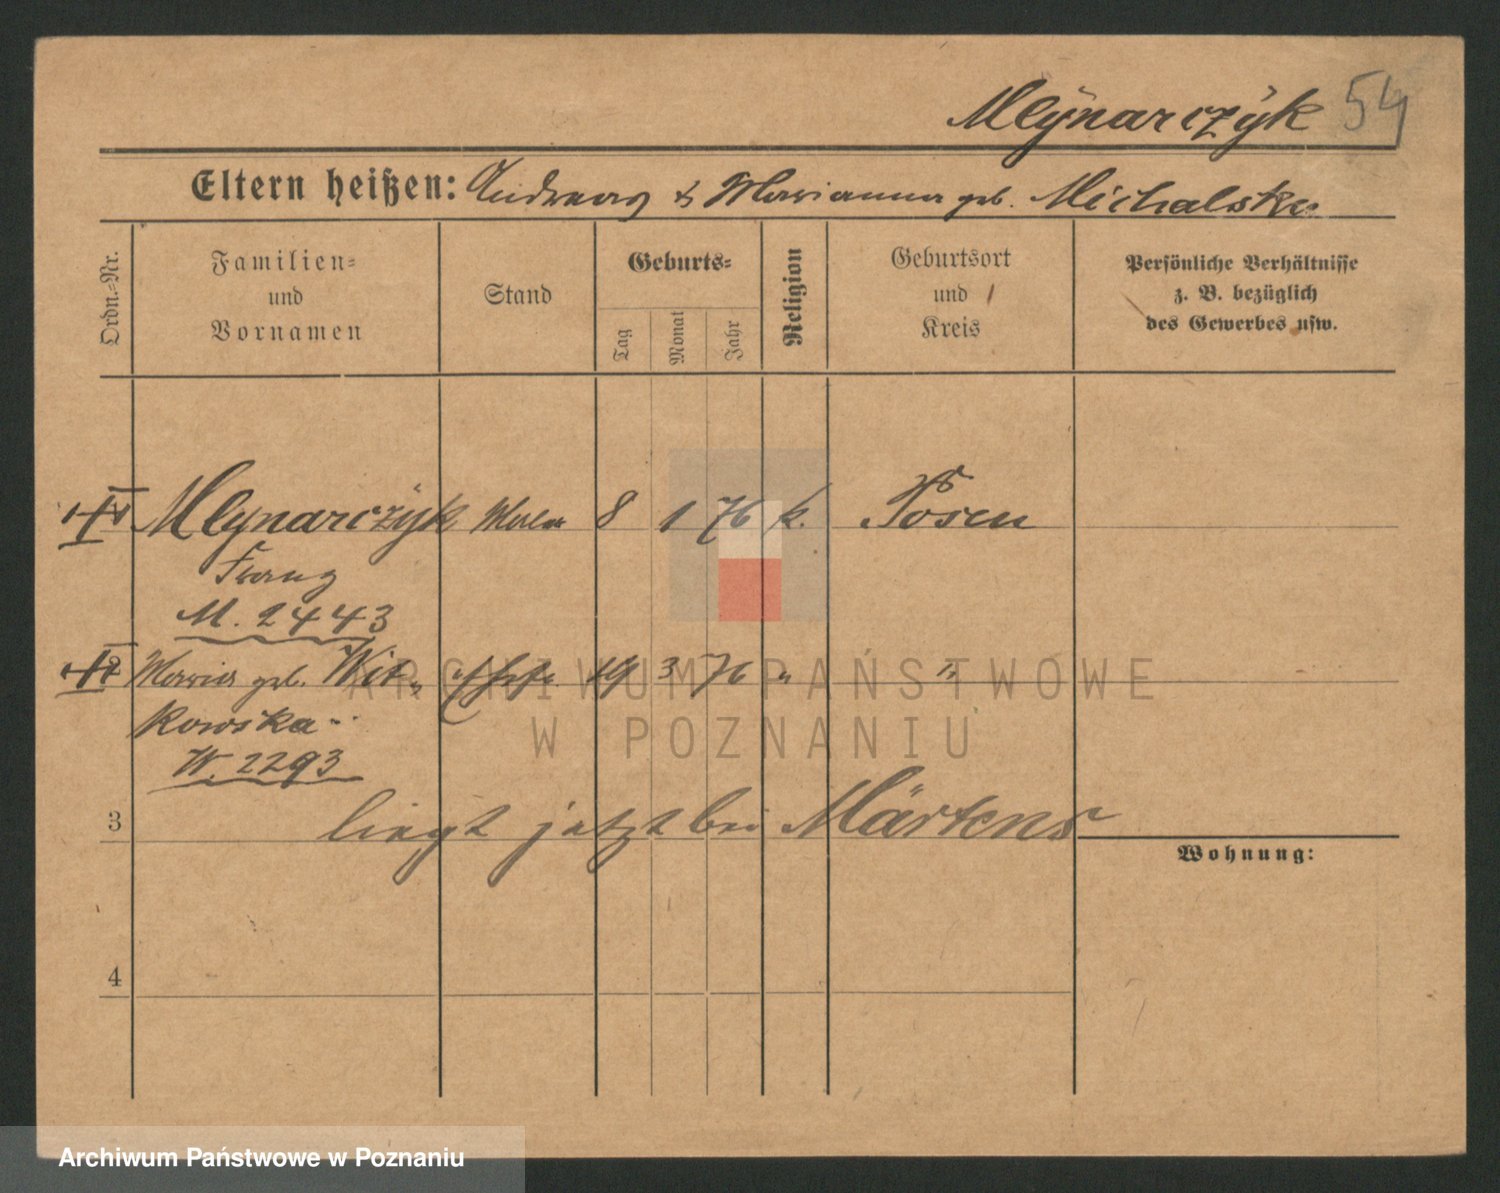 Mlynarczyk 54
Eltern heißen: Andreas & Marianna geb. Michalska
Ordn.-Nr.
Familien-
und
Vornamen
Stand
Geburts-
Tag
Monat
Jahr
Religion
Geburtsort
und
Kreis
Persönliche Verhältnisse
z. B. bezüglich
des Gewerbes usw.
Mlynarczyk Maler 8 1 76 k. Posen
Franz
M. 2443
Maria geb. Wit- Ehefr. 19 3 76 " "
kowska
W. 2293
3
liegt jetzt bei Märtens
Wohnung:
4
ARCHIWUM PAŃSTWOWE
W POZNANIU
Archiwum Państwowe w Poznaniu